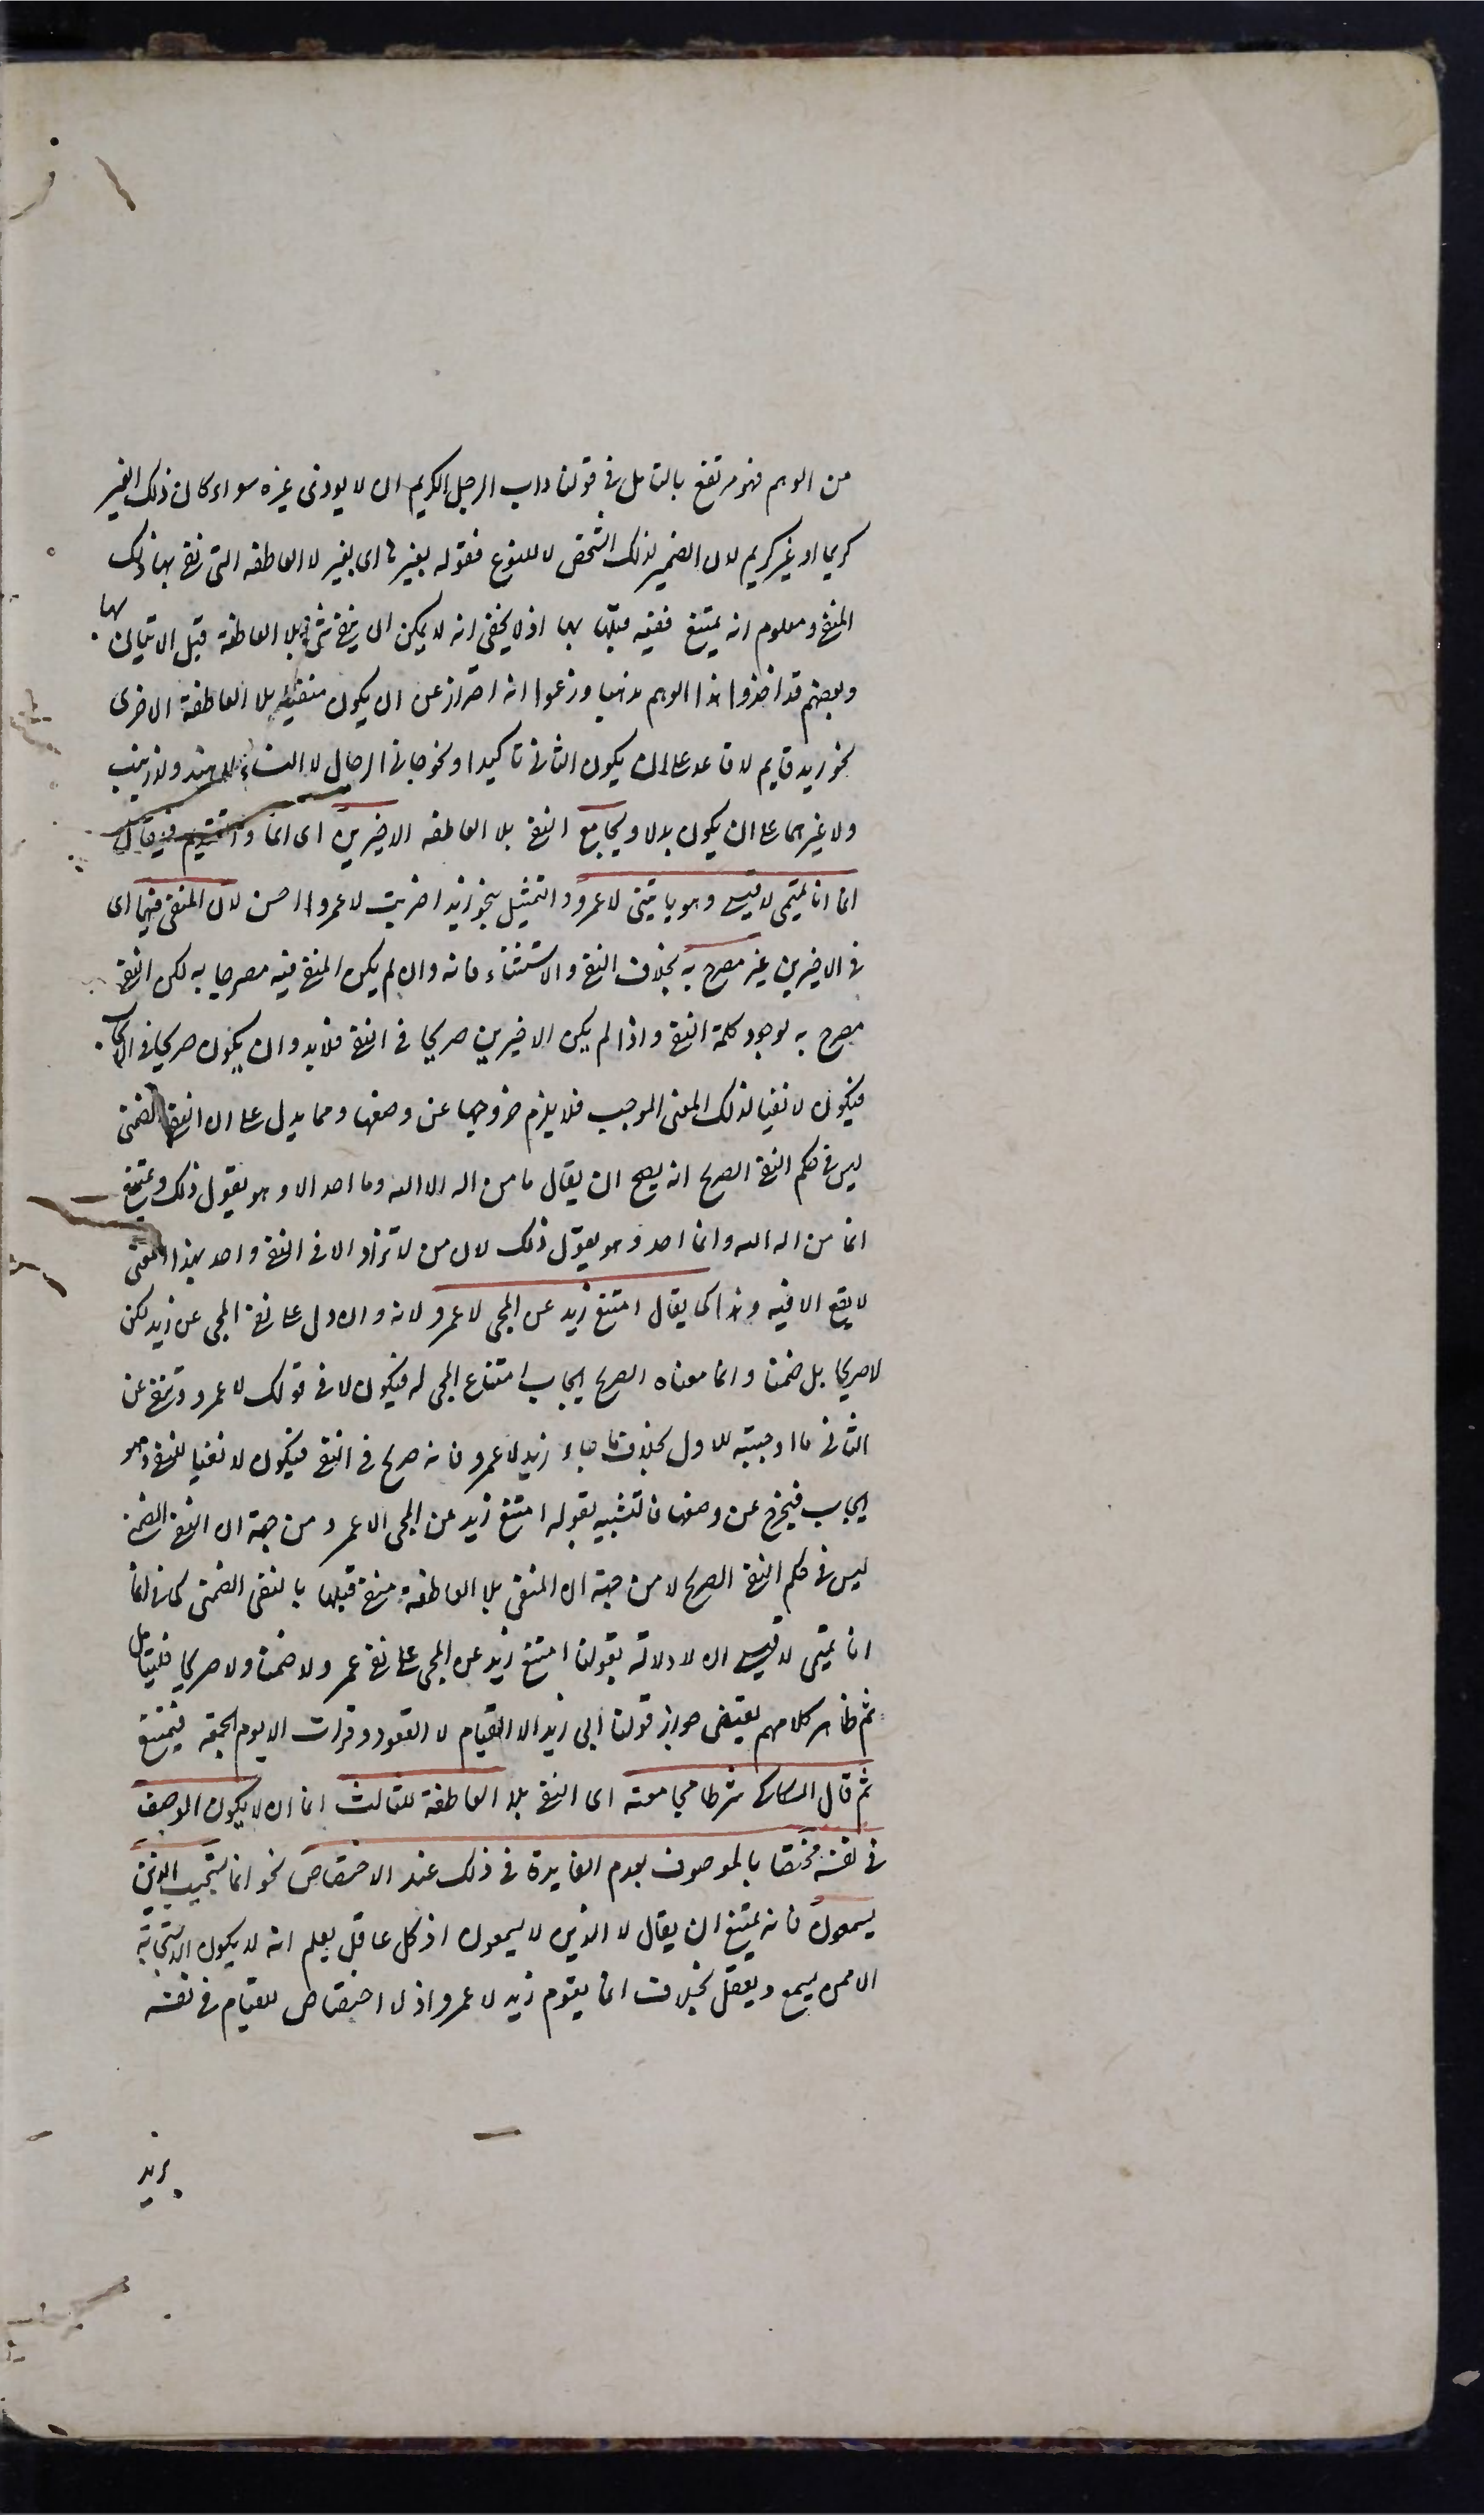 من الوهم فهو مرتفع بالتامل فى قولنا داب الرجل الكريم ان لا يوذى غيره سواء كان ذلك الغير
كريما او غير كريم لان الضمير لذلك الشخص لا للنوع فقوله بغيرها اى بغير لا العاطفه التى نفى بها ذلك
المنفى ومعلوم انه يمتنع نفيه قبلها بها اذ لا يخفى انه لا يمكن ان ينفى شئ بلا العاطفة قبل الاتيان بها
وبعضهم قد اخذوا هذا الوهم مذهبا وزعموا انه احتراز عن ان يكون منفيا بلا العاطفة الاخرى
نحو زيد قايم لا قاعد على ان يكون الثانى تاكيدا ونحو جانى الرجال لا النساء لا هند ولا زينب
ولا غيرهما على ان يكون بدلا ويجامع النفى بلا العاطفه الاخيرين اى انما والتقديم فيقال
انما انا تميمى لا قيسى وهو ياتينى لا عمرو والتمثيل بنحو زيدا ضربت لا عمروا احسن لان المنفى فيهما اى
فى الاخيرين غير مصرح به بخلاف النفى والاستثناء فانه وان لم يكن المنفى فيه مصرحا به لكن النفى
مصرح به لوجود كلمة النفى واذا لم يكن الاخيرين صريحا فى النفى فلابد وان يكون صريحا فى الايجاب
فيكون لا نفيا لذلك المعنى الموجب فلا يلزم خروجها عن وضعها ومما يدل على ان النفى الضمنى
ليس فى حكم النفى الصريح انه يصح ان يقال ما من اله الا الله وما احد الا وهو يقول ذلك ويمتنع
انما من اله الله وانما احد وهو يقول ذلك لان من لا تزاد الا فى النفى واحد بهذا المعنى
لا يقع الا فيه وهذا كما يقال امتنع زيد عن المجى لا عمرو لانه وان دل على نفى المجى عن زيد لكن
لا صريحا بل ضمنا وانما معناه الصريح ايجاب امتناع المجى له فيكون لا فى قولك لا عمرو تنفى عن
الثانى ما اوجبته للاول بخلاف ما جاء زيد لا عمرو فانه صريح فى النفى فيكون لا نفيا للنفى وهو
ايجاب فيخرج عن وضعها فالتشبيه بقوله امتنع زيد عن المجى لا عمرو من جهة ان النفى الضمنى
ليس فى حكم النفى الصريح لا من جهة ان المنفى بلا العاطفة منفى قبلها بالنفى الضمنى كما فى انما
انا تميمى لا قيسى اذ لا دلالة بقولنا امتنع زيد عن المجى على نفى عمرو لا ضمنا ولا صريحا فليتامل
ثم ظاهر كلامهم يقتضى جواز قولنا ابى زيد الا القيام لا القعود وقرات الا يوم الجمعة فيمتنع
ثم قال السكاكى شرط مجامعته اى النفى بلا العاطفة للثالث انما ان لا يكون الوصف
فى نفسه مختصا بالموصوف لعدم الفايدة فى ذلك عند الاختصاص نحو انما يستجيب الذين
يسمعون فانه يمتنع ان يقال لا الذين لا يسمعون اذ كل عاقل يعلم انه لا يكون الاستجابة
الا ممن يسمع ويعقل بخلاف انما يقوم زيد لا عمرو اذ لا اختصاص للقيام فى نفسه
بزيد